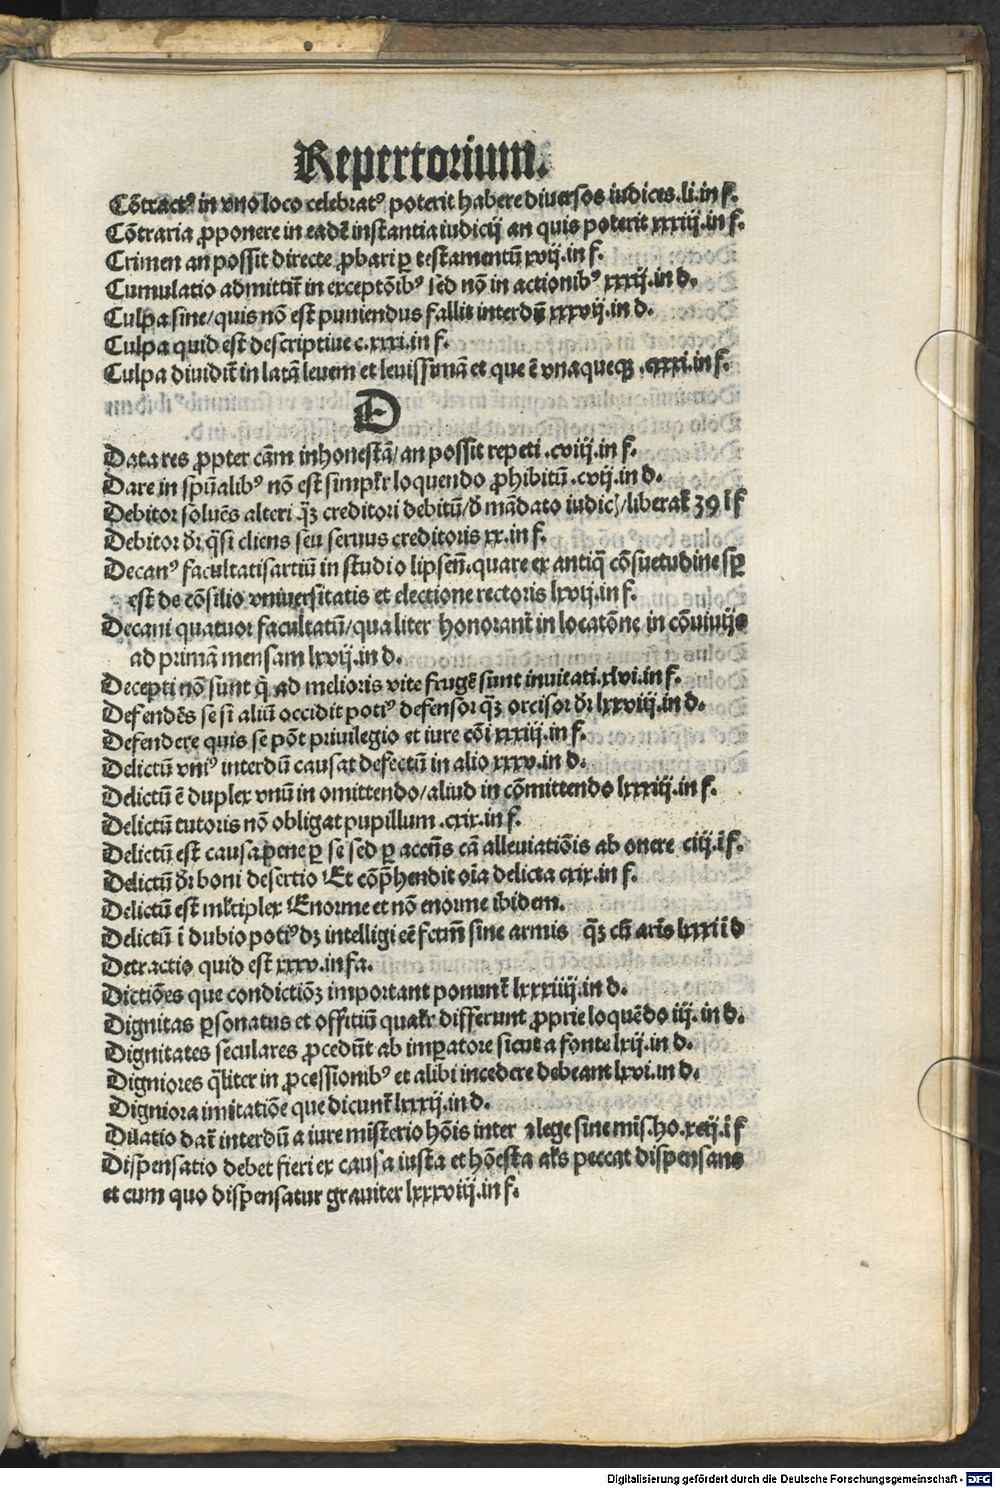 Repertorium.
Cõtractꝰ in vno loco celebratꝰ poterit habere diuersos iudices.li.in f.
Cõtraria ꝓponere in eadẽ instantia iudicij an quis poterit xxxiij.in f.
Crimen an possit directe ꝓbari ꝑ testamentũ xvij.in f.
Cumulatio admittit̃ in exceptõibꝰ sed nõ in actionibꝰ xxxij.in d.
Culpa sine/quis nõ est puniendus fallit interdũ xxxvij.in d.
Culpa quid est descriptiue c.xxxi.in f.
Culpa diuidit̃ in latã leuem et leuissimã et que ẽ vnaqueqꝫ .cxxxi.in f.
D
Data res ꝓpter cãm inhonestã/an possit repeti .cviij.in f.
Dare in spũalibꝰ nõ est simplr̃ loquendo ꝓhibitũ .cvij.in d.
Debitor soluẽs alteri qꝫ̃ creditori debitũ/ð mãdato iudic)/liberat̃ 39 ĩ f
Debitor dr̃ q̃si cliens seu seruus creditoris xx.in f.
Decanꝰ facultatis artiũ in studio lipsen̄.quare ex antiq̃ cõsuetudine sꝑ
est de cõsilio vniuersitatis et electione rectoris lxvij.in f.
Decani quatuor facultatũ/qualiter honorant̃ in locatõne in cõuiuijs
ad primã mensam lxvij.in d.
Decepti nõ sunt q̃ ad melioris vite frugẽ sunt inuitati.xlvi.in f.
Defendẽs se si aliũ occidit potiꝰ defensor qꝫ̃ occisor dr̃ lxxviij.in d.
Defendere quis se põt priuilegio et iure cõi xxxiij.in f.
Delictũ vniꝰ interdũ causat defectũ in alio xxxv.in d.
Delictũ ẽ duplex vnũ in omittendo/aliud in cõmittendo lxxxiij.in f.
Delictũ tutoris nõ obligat pupillum .cxix.in f.
Delictũ est causa pene ꝑ se sed ꝑ accñs cã alleuiatiõis ab onere ciij.ĩ f.
Delictũ dr̃ boni desertio Et cõp̃hendit oĩa delicta cxix.in f.
Delictũ est ml̃tiplex Enorme et nõ enorme ibidem.
Delictũ ĩ dubio potiꝰ dꝫ intelligi eẽ fctm̃ sine armis qꝫ̃ cũ arĩs lxxxi ĩ d
Detractio quid est xxxv.in fa.
Dictiões que condictiõꝫ important ponunt̃ lxxxiiij.in d.
Dignitas ꝑsonatus et offitiũ qualr̃ differunt ꝓprie loquẽdo iij. in d.
Dignitates seculares ꝓcedũt ab imꝑatore sicut a fonte lxij.in d.
Digniores q̃liter in ꝓcessionibꝰ et alibi incedere debeant lxvi.in d.
Digniora imitatiõe que dicunt̃ lxxxij.in d.
Dilatio dat̃ interdũ a iure mĩsterio hõis inter ꝛ lege sine mĩs.ho.xcij.ĩ f
Dispensatio debet fieri ex causa iusta et hõesta al̃s peccat dispensans
et cum quo dispensatur grauiter lxxxviij.in f.
Digitalisierung gefördert durch die Deutsche Forschungsgemeinschaft - DFG